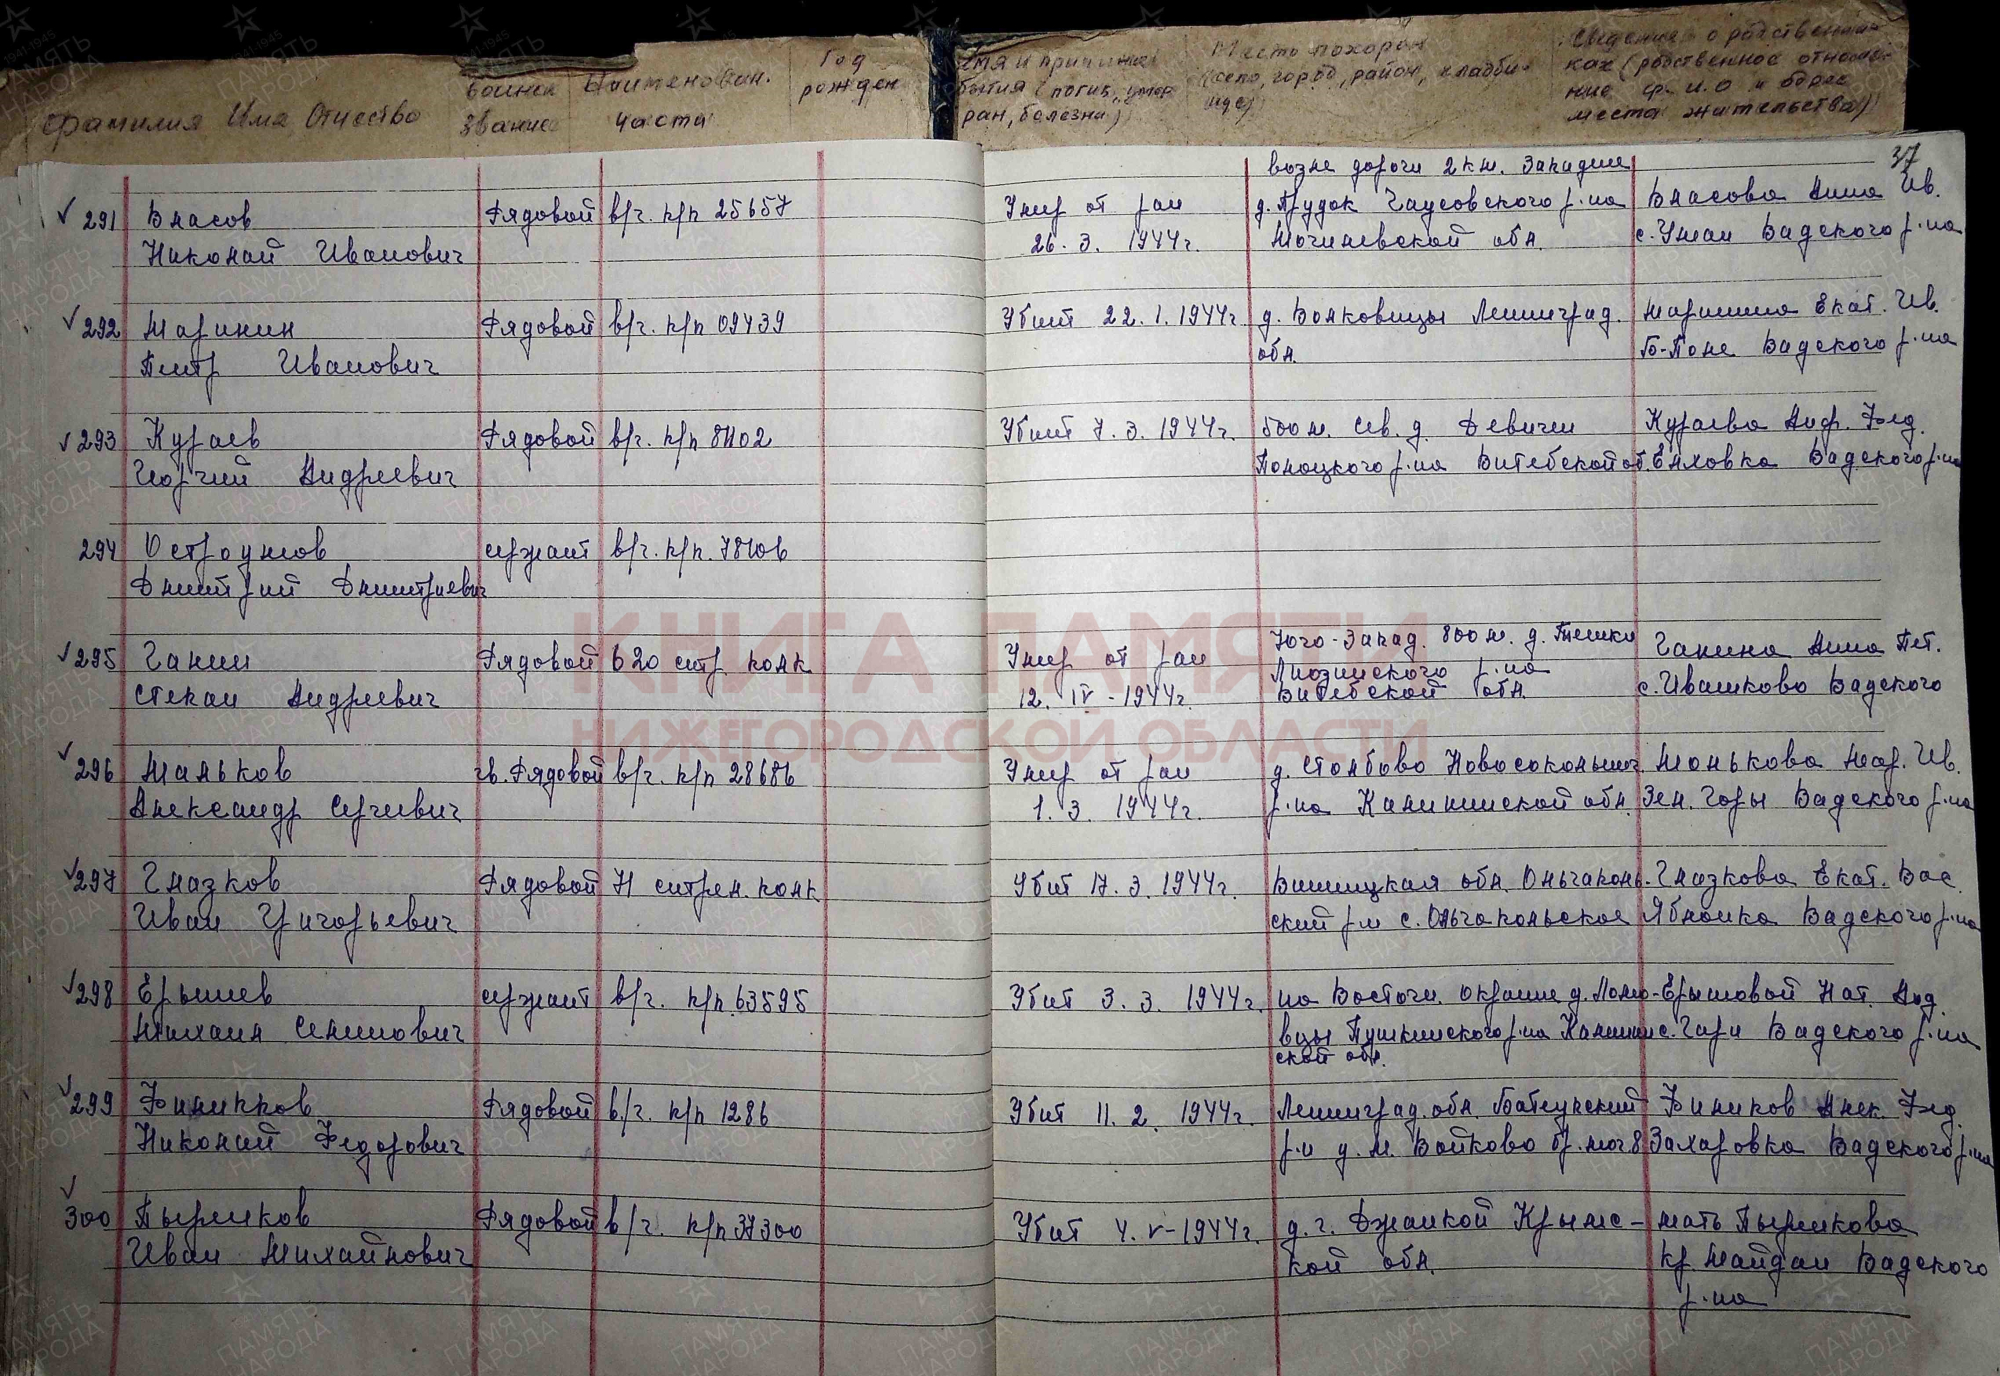 Фамилия Имя Отчество
воинск звание
Наименован. части
Год рожден
бытия (погиб, умер
ран, болезни)
Место похорон
(село, город, район, кладби-
ще)
Сведения о родственни-
ках (родственное отноше-
ние ф.и.о и адрес
места жительства)
37
возле дороги 2 км. Западнее
291 Власов Рядовой в/ч. п/п 25657 Умер от ран д. Прудок Чаусовского р-на Власова Анна Ив.
Николай Иванович 26. 3. 1944г. Могилевской обл. с. Умай Вадского р-на
292 Маринин Рядовой в/ч. п/п 09439 Убит 22.1.1944г. д. Волковицы Ленинград. Маринина Екат. Ив.
Петр Иванович обл. Б-Поле Вадского р-на
293 Кураев Рядовой в/ч. п/п Убит 7.3.1944г. 500 м. сев. д. Девички Кураева Анф. Фед.
Георгий Андреевич Полоцкого р-на Витебской об. Елховка Вадского р-на
294 Остроумов сержант в/ч. п/п.
Дмитрий Дмитриевич
Юго-Запад. 800 м. д.
295 Ганин Рядовой 620 стр. полк Умер от ран Лиозненского р-на Ганина Анна Пет.
Степан Андреевич 12. IV - 1944г. Витебской обл. с. Ивашково Вадского
296 Маньков гв. Рядовой в/ч. п/п 28686 Умер от ран д. Столбово Новосокольнич. Манькова Мар. Ив.
Александр Сергеевич 1. 3. 1944г. р-на Калининской обл. Зел. Горы Вадского р-на
297 Глазков Рядовой 71 стрел. полк Убит 17. 3. 1944г. Винницкая обл. Ольгополь- Глазкова Екат. Вас.
Иван Григорьевич ский р-н с. Ольгопольское Яблонка Вадского р-на
298 Ерышев сержант в/ч. п/п 63595 Убит 3. 3. 1944г. на Восточн. окраине д. Ерышовой Нат. Анд.
Михаил Семенович вцы Пушкинского р-на Калинин с. Гари Вадского р-на
ской обл.
299 Фиников Рядовой в/ч. п/п 1286 Убит 11. 2. 1944г. Ленинград. обл. Батецкий Фиников Алек. Фед.
Николай Федорович р-н д. М. Войково бр. мог. 8 Захаровка Вадского р-на
300 Пырков Рядовой в/ч. п/п 37300 Убит 4. V - 1944г. д. г. Джанкой Крымс- мать
Иван Михайлович кой обл. Кр. Майдан Вадского
р-на
КНИГА ПАМЯТИ
НИЖЕГОРОДСКОЙ ОБЛАСТИ
ПАМЯТЬ НАРОДА